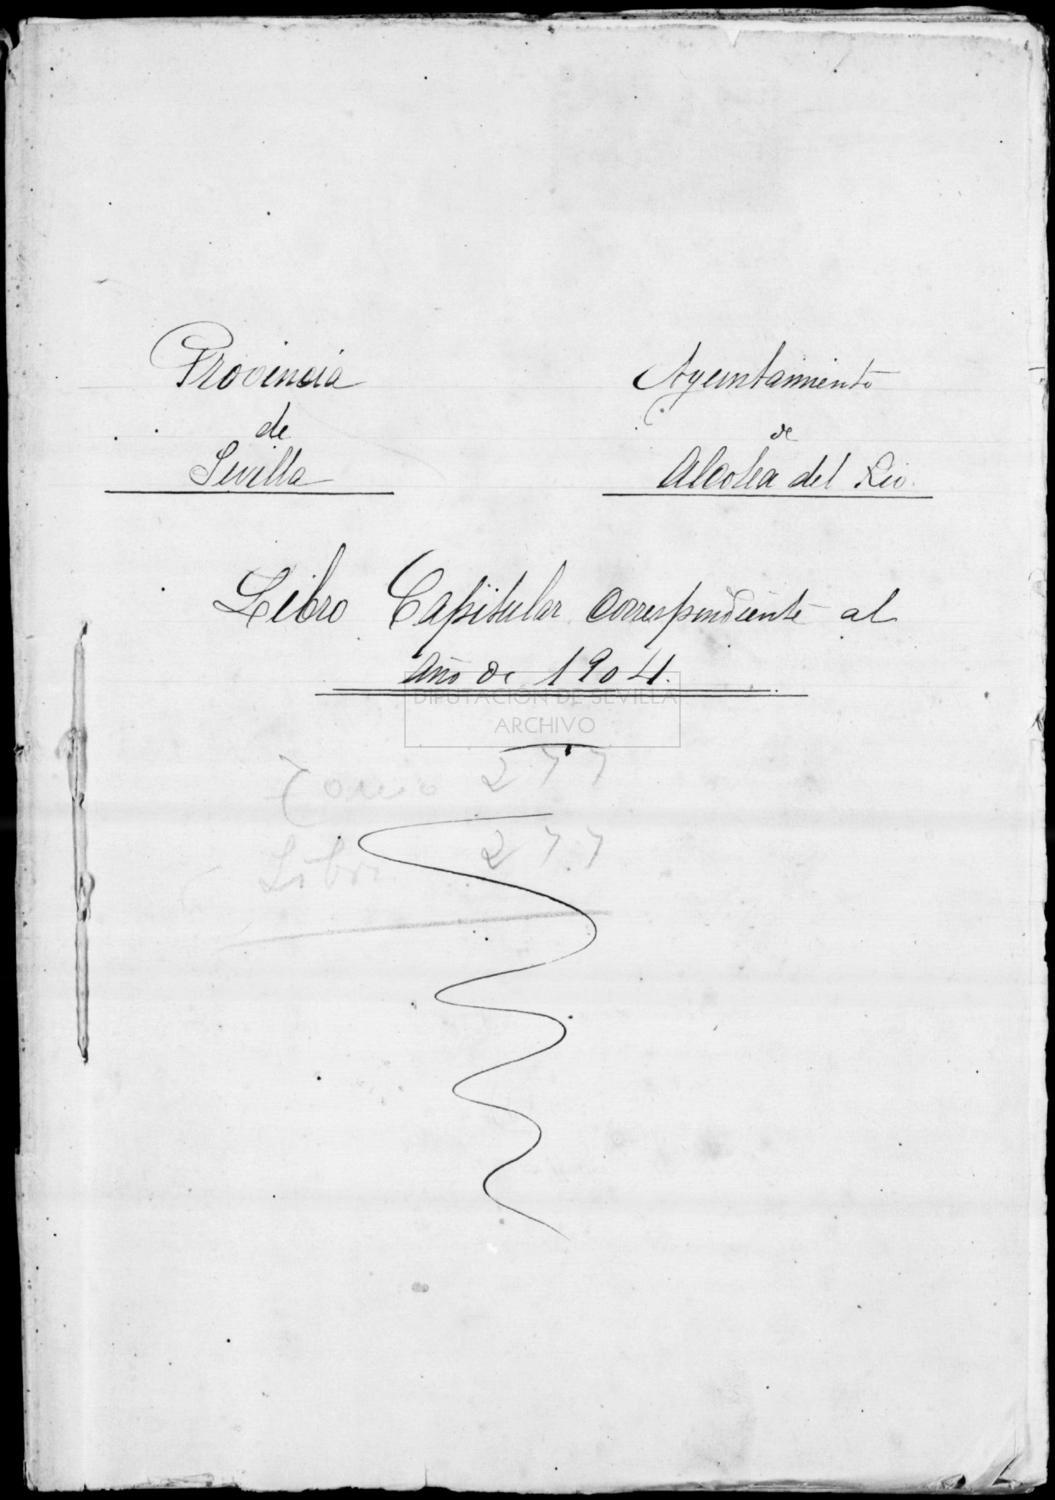 Provincia
de
Sevilla
Ayuntamiento
de
Alcolea del Rio.
Libro Capitular correspondiente al
Año de 1904.
DIPUTACIÓN DE SEVILLA
ARCHIVO
Tomo 277
Libro 277